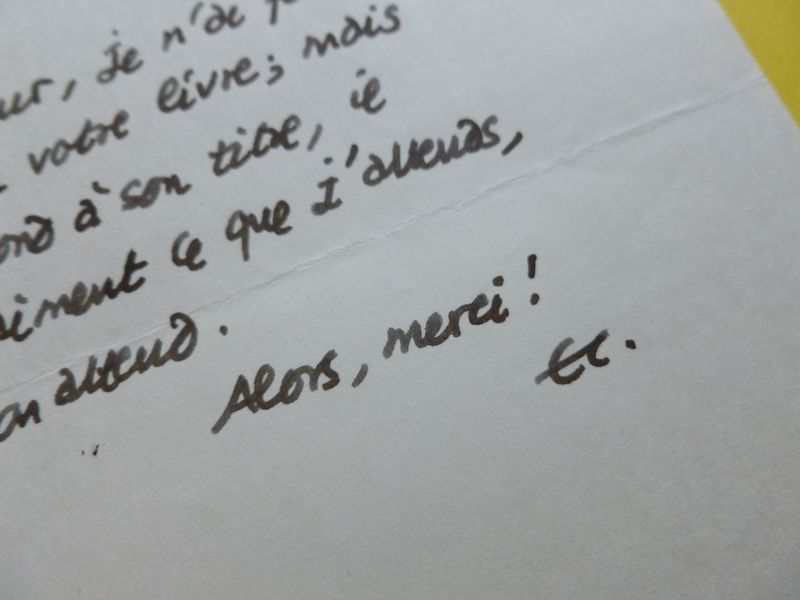 ur, je n'ai
votre livre; mais
ond à son titre, je
aiment ce que j'attends,
on attend.
Alors, merci!
EC.